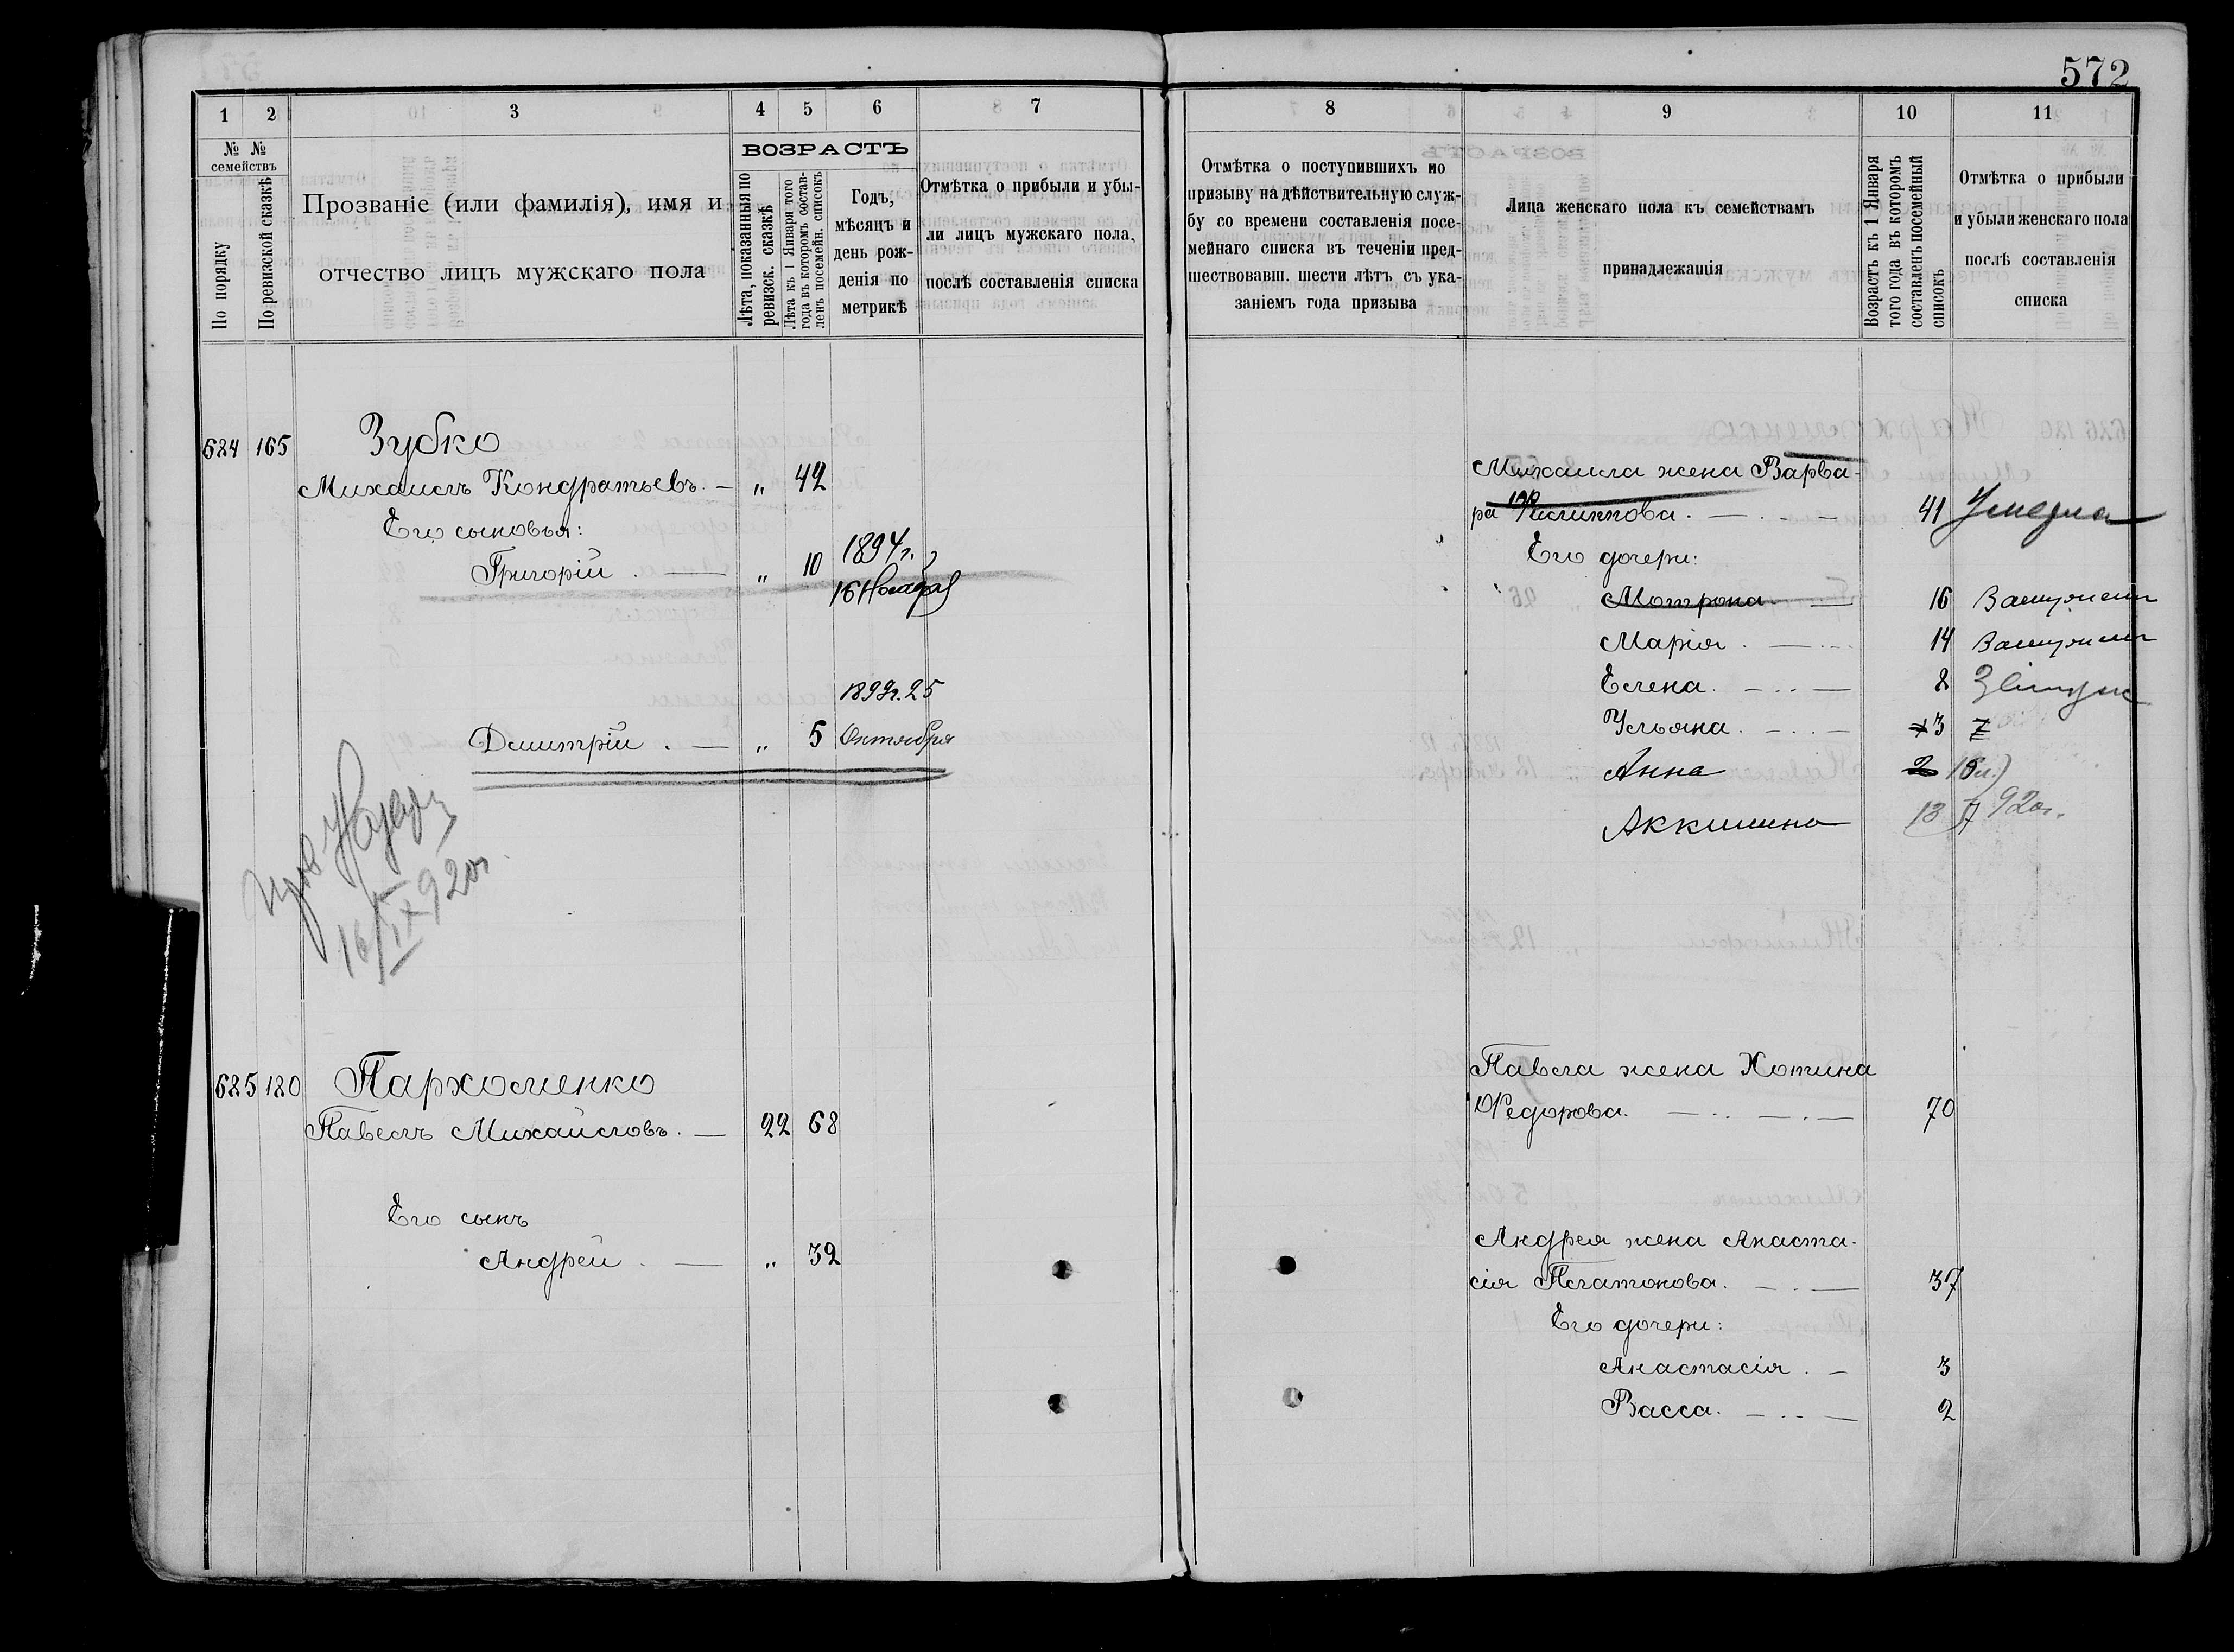 572
1 2 3 4 5 6 7
№ № семействъ
По порядку
По ревизской сказкѣ
Прозваніе (или фамилія), имя и
отчество лицъ мужскаго пола
ВОЗРАСТЪ
Лѣта, показанныя по
ревизск. сказкѣ
Лѣта къ 1 Января того
года въ которомъ состав-
ленъ посемейн. списокъ
Годъ,
мѣсяцъ и
день рож-
денія по
метрикѣ
Отмѣтка о прибыли и убы-
ли лицъ мужскаго пола,
послѣ составленія списка
684 165 Зубко
Михаилъ Кондратьевъ. — „ 42
Его сыновья:
Григорій . — „ 10 1894г.
16 Ноября
1899г. 25
Димитрій . — „ 5 Октября
16/IX 920г.
685 180 Пархоменко
Павелъ Михайловъ. — 22 68
Его сынъ
Андрей . — „ 32
8 9 10 11
Отмѣтка о поступившихъ по
призыву на дѣйствительную служ-
бу со времени составленія посе-
мейнаго списка въ теченіи пред-
шествовавш. шести лѣтъ съ ука-
заніемъ года призыва
Лица женскаго пола къ семействамъ
принадлежащія
Возрастъ къ 1 Января
того года въ которомъ
составленъ посемейный
списокъ
Отмѣтка о прибыли
и убыли женскаго пола
послѣ составленія
списка
Михаила жена Варва-
ра Филиппова. — . — 41 Умерла
Его дочери:
Мотрона — 16 Замужем
Марія . — 14 Замужем
Елена. — .. — 8
Ульяна. — .. — 3
Анна 2
Аккилина 13 920г.
Павла жена Хотина
Федорова. — .. — . — 70
Андрея жена Анаста-
сія Платонова. — . — 37
Его дочери:
Анастасія . — 3
Васса. — .. — 2